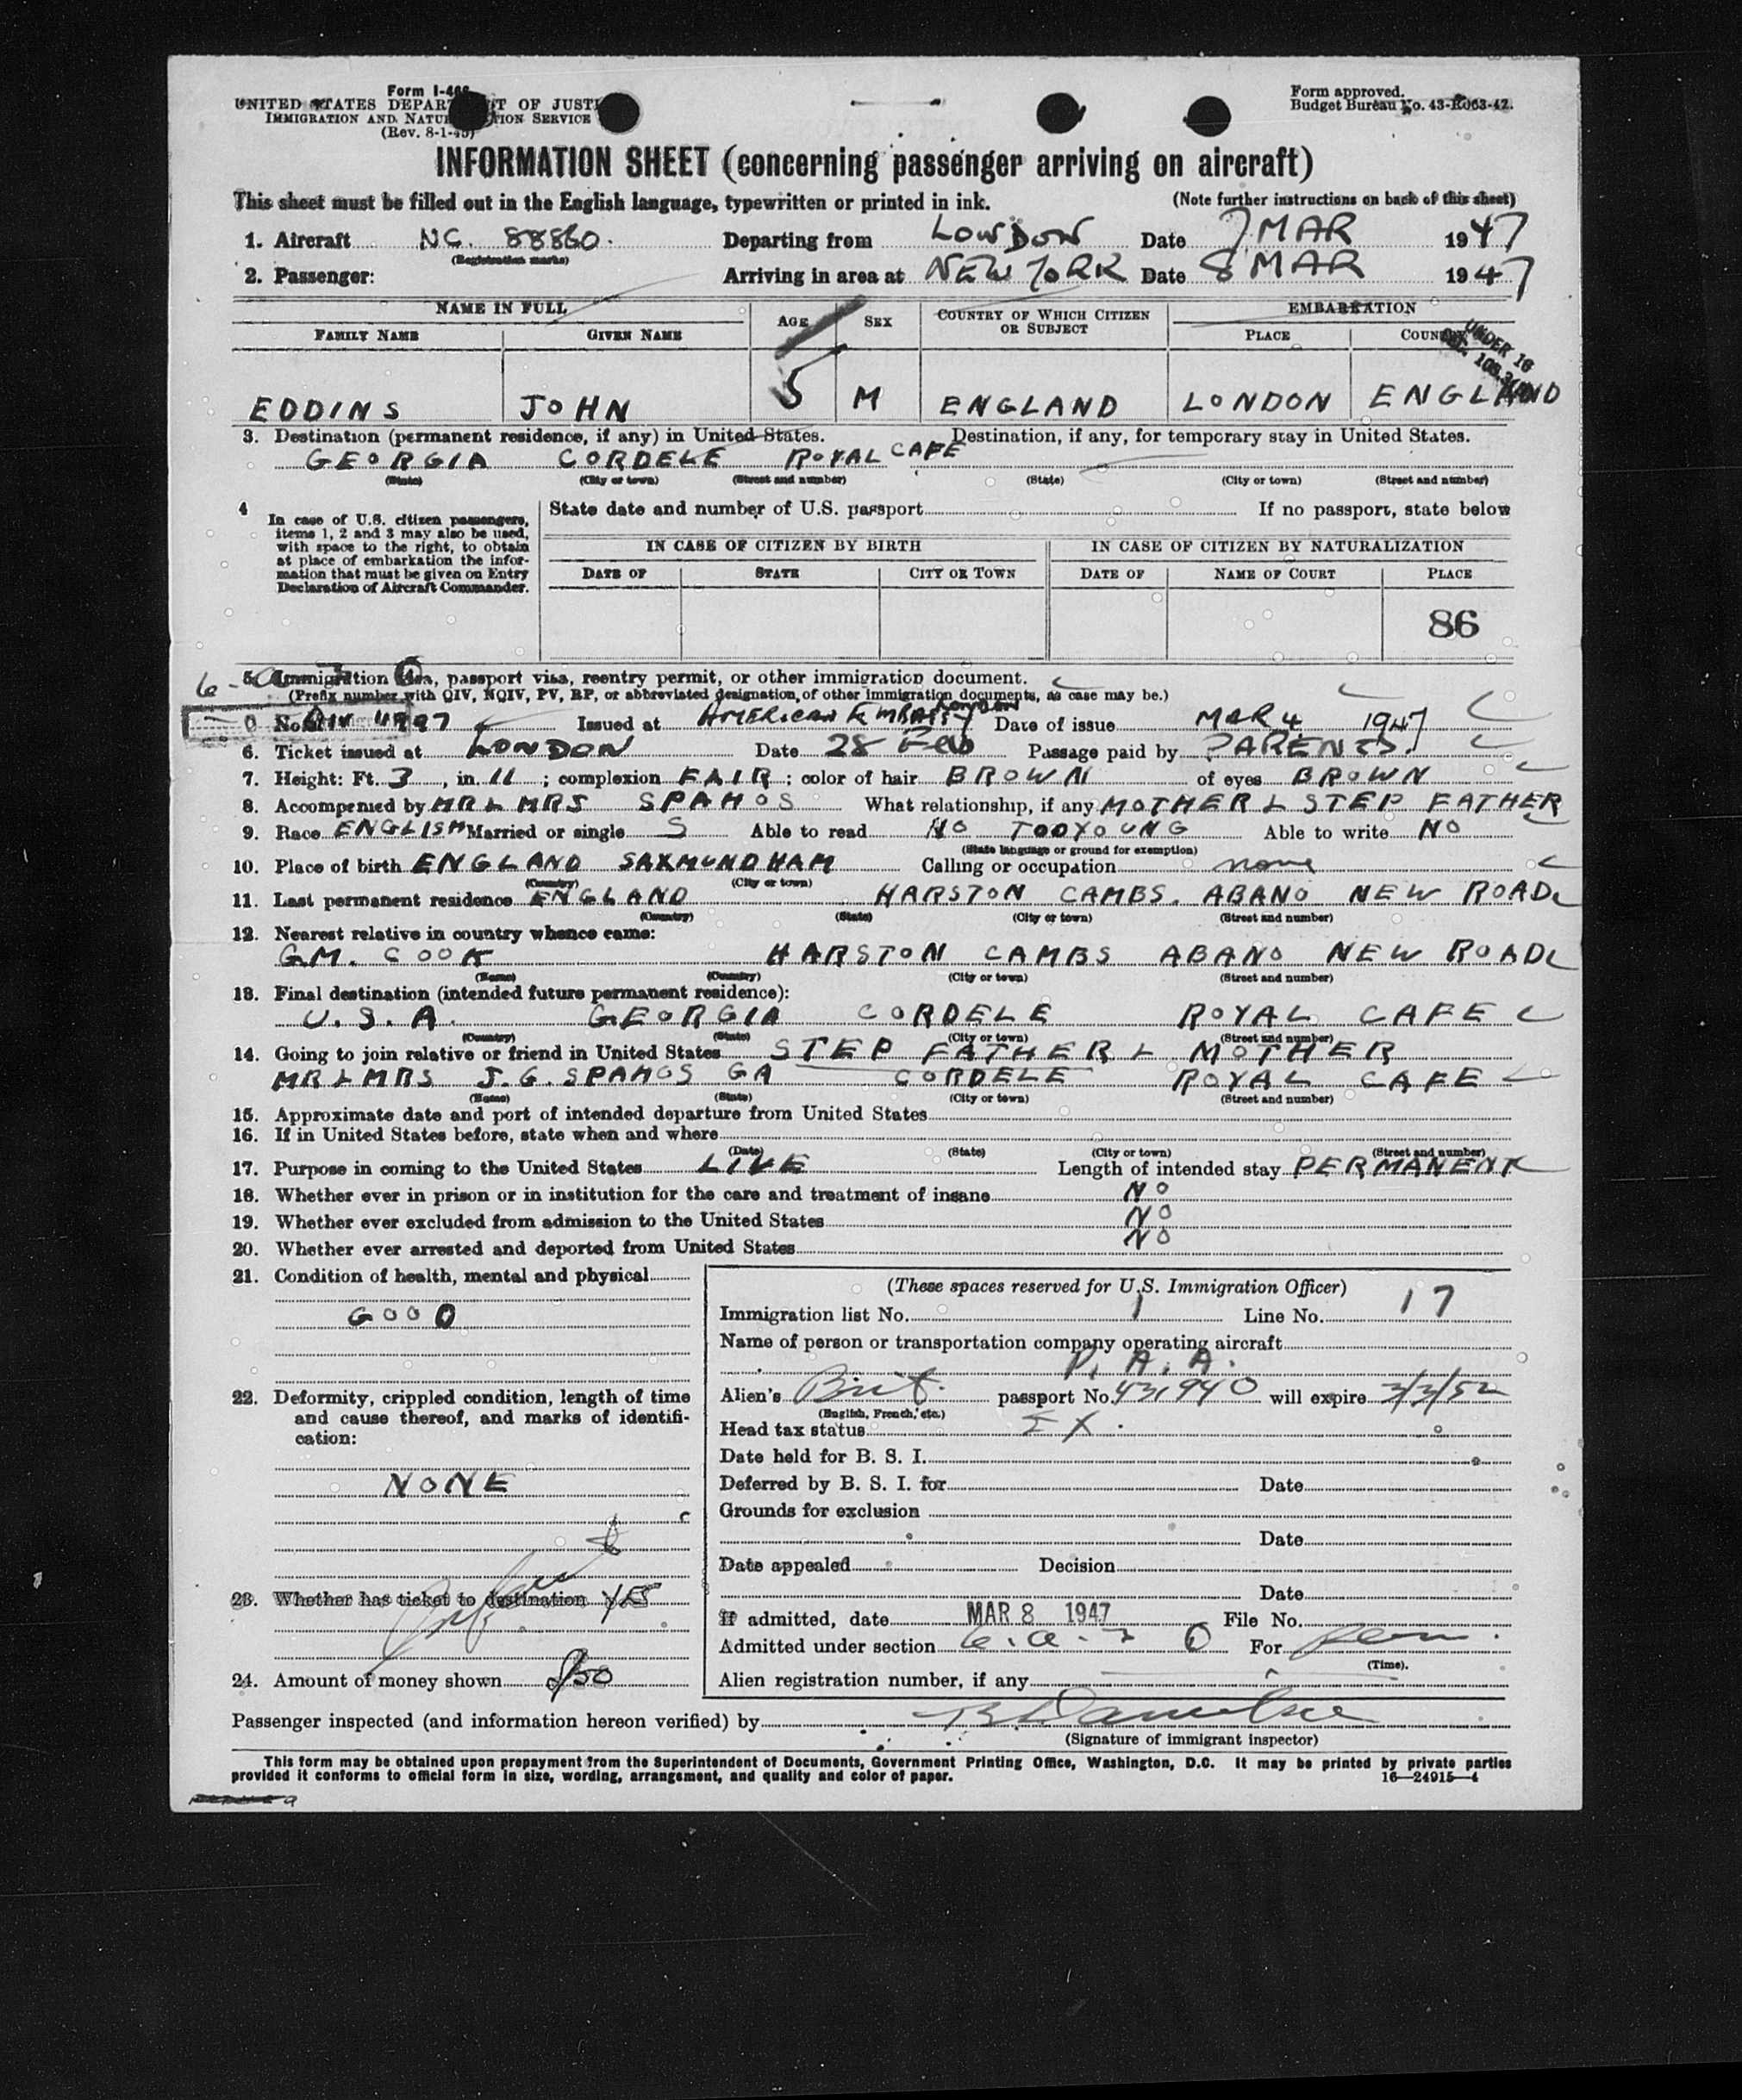 Form I-466
UNITED STATES DEPARTMENT OF JUSTICE
IMMIGRATION AND NATURALIZATION SERVICE
(Rev. 8-1-45)
Form approved.
Budget Bureau No. 43-R063-42.
INFORMATION SHEET (concerning passenger arriving on aircraft)
This sheet must be filled out in the English language, typewritten or printed in ink. (Note further instructions on back of this sheet)
1. Aircraft NC. 88860. Departing from LONDON Date 7 MAR 1947
(Registration marks)
2. Passenger: Arriving in area at NEW YORK Date 8 MAR 1947
NAME IN FULL AGE SEX COUNTRY OF WHICH CITIZEN OR SUBJECT EMBARKATION
FAMILY NAME GIVEN NAME PLACE COUNTRY
UNDER 16
EDDINS JOHN 5 M ENGLAND LONDON ENGLAND
3. Destination (permanent residence, if any) in United States. Destination, if any, for temporary stay in United States.
GEORGIA CORDELE ROYAL CAFE
(State) (City or town) (Street and number) (State) (City or town) (Street and number)
4 In case of U.S. citizen passengers, items 1, 2 and 3 may also be used, with space to the right, to obtain at place of embarkation the information that must be given on Entry Declaration of Aircraft Commander.
State date and number of U.S. passport If no passport, state below
IN CASE OF CITIZEN BY BIRTH IN CASE OF CITIZEN BY NATURALIZATION
DATE OF STATE CITY OR TOWN DATE OF NAME OF COURT PLACE
86
5. Immigration visa, passport visa, reentry permit, or other immigration document.
(Prefix number with QIV, NQIV, PV, RP, or abbreviated designation of other immigration documents, as case may be.)
No. QIV Issued at AMERICAN EMBASSY LONDON Date of issue MAR 4 1947
6. Ticket issued at LONDON Date 28 Feb Passage paid by PARENTS.
7. Height: Ft. 3, in. 11; complexion FAIR; color of hair BROWN of eyes BROWN
8. Accompanied by MR & MRS SPAHOS What relationship, if any MOTHER & STEP FATHER
9. Race ENGLISH Married or single S Able to read NO TOO YOUNG Able to write NO
(State language or ground for exemption)
10. Place of birth ENGLAND SAXMUNDHAM Calling or occupation none
(Country) (City or town)
11. Last permanent residence ENGLAND HARSTON CAMBS. ABANO NEW ROAD
(Country) (State) (City or town) (Street and number)
12. Nearest relative in country whence came:
G.M. COOK HARSTON CAMBS ABANO NEW ROAD
(Name) (Country) (City or town) (Street and number)
13. Final destination (intended future permanent residence):
U.S.A. GEORGIA CORDELE ROYAL CAFE
(Country) (State) (City or town) (Street and number)
14. Going to join relative or friend in United States STEP FATHER & MOTHER
MR & MRS J.G. SPAHOS GA CORDELE ROYAL CAFE
(Name) (State) (City or town) (Street and number)
15. Approximate date and port of intended departure from United States
16. If in United States before, state when and where
(Date) (State) (City or town) (Street and number)
17. Purpose in coming to the United States LIVE Length of intended stay PERMANENT
18. Whether ever in prison or in institution for the care and treatment of insane NO
19. Whether ever excluded from admission to the United States NO
20. Whether ever arrested and deported from United States NO
21. Condition of health, mental and physical
GOOD
22. Deformity, crippled condition, length of time and cause thereof, and marks of identification:
NONE
23. Whether has ticket to destination YES
24. Amount of money shown $50
(These spaces reserved for U.S. Immigration Officer)
Immigration list No. 1 Line No. 17
Name of person or transportation company operating aircraft
P. A. A.
Alien's Brit. passport No. 431940 will expire 3/3/52
(English, French, etc.)
Head tax status EX.
Date held for B. S. I.
Deferred by B. S. I. for Date
Grounds for exclusion
Date
Date appealed Decision
Date
If admitted, date MAR 8 1947 File No.
Admitted under section 6.a.3 For perm.
(Time).
Alien registration number, if any
Passenger inspected (and information hereon verified) by
(Signature of immigrant inspector)
This form may be obtained upon prepayment from the Superintendent of Documents, Government Printing Office, Washington, D.C. It may be printed by private parties
provided it conforms to official form in size, wording, arrangement, and quality and color of paper. 16—24915—4